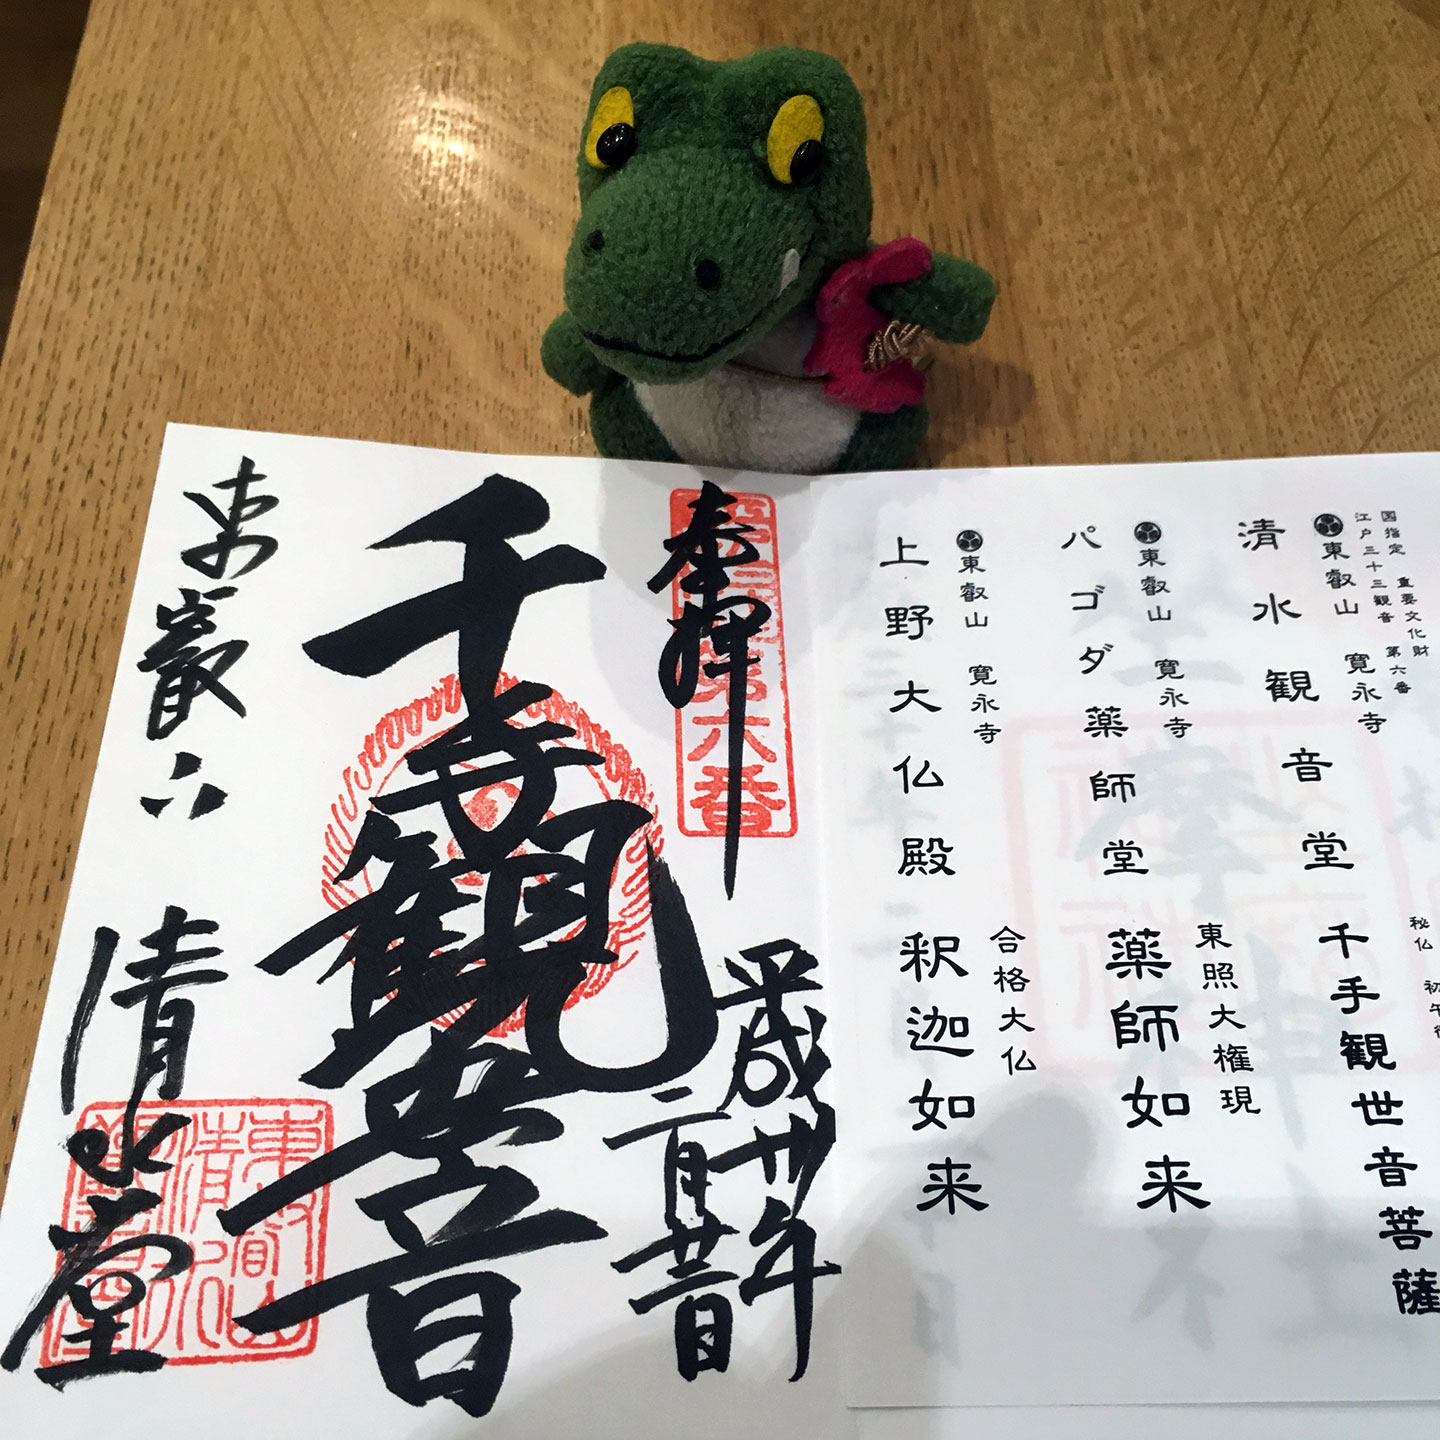 国指定 重要文化財
江戸三十三観音 第六番
東叡山 寛永寺
清水観音堂
秘仏
千手観世音菩薩
東叡山 寛永寺
パゴダ薬師堂
東照大権現
薬師如来
東叡山 寛永寺
上野大仏殿
合格大仏
釈迦如来
奉拝
第六番
平成卅年
二月
千手観世音
東叡山
清水堂